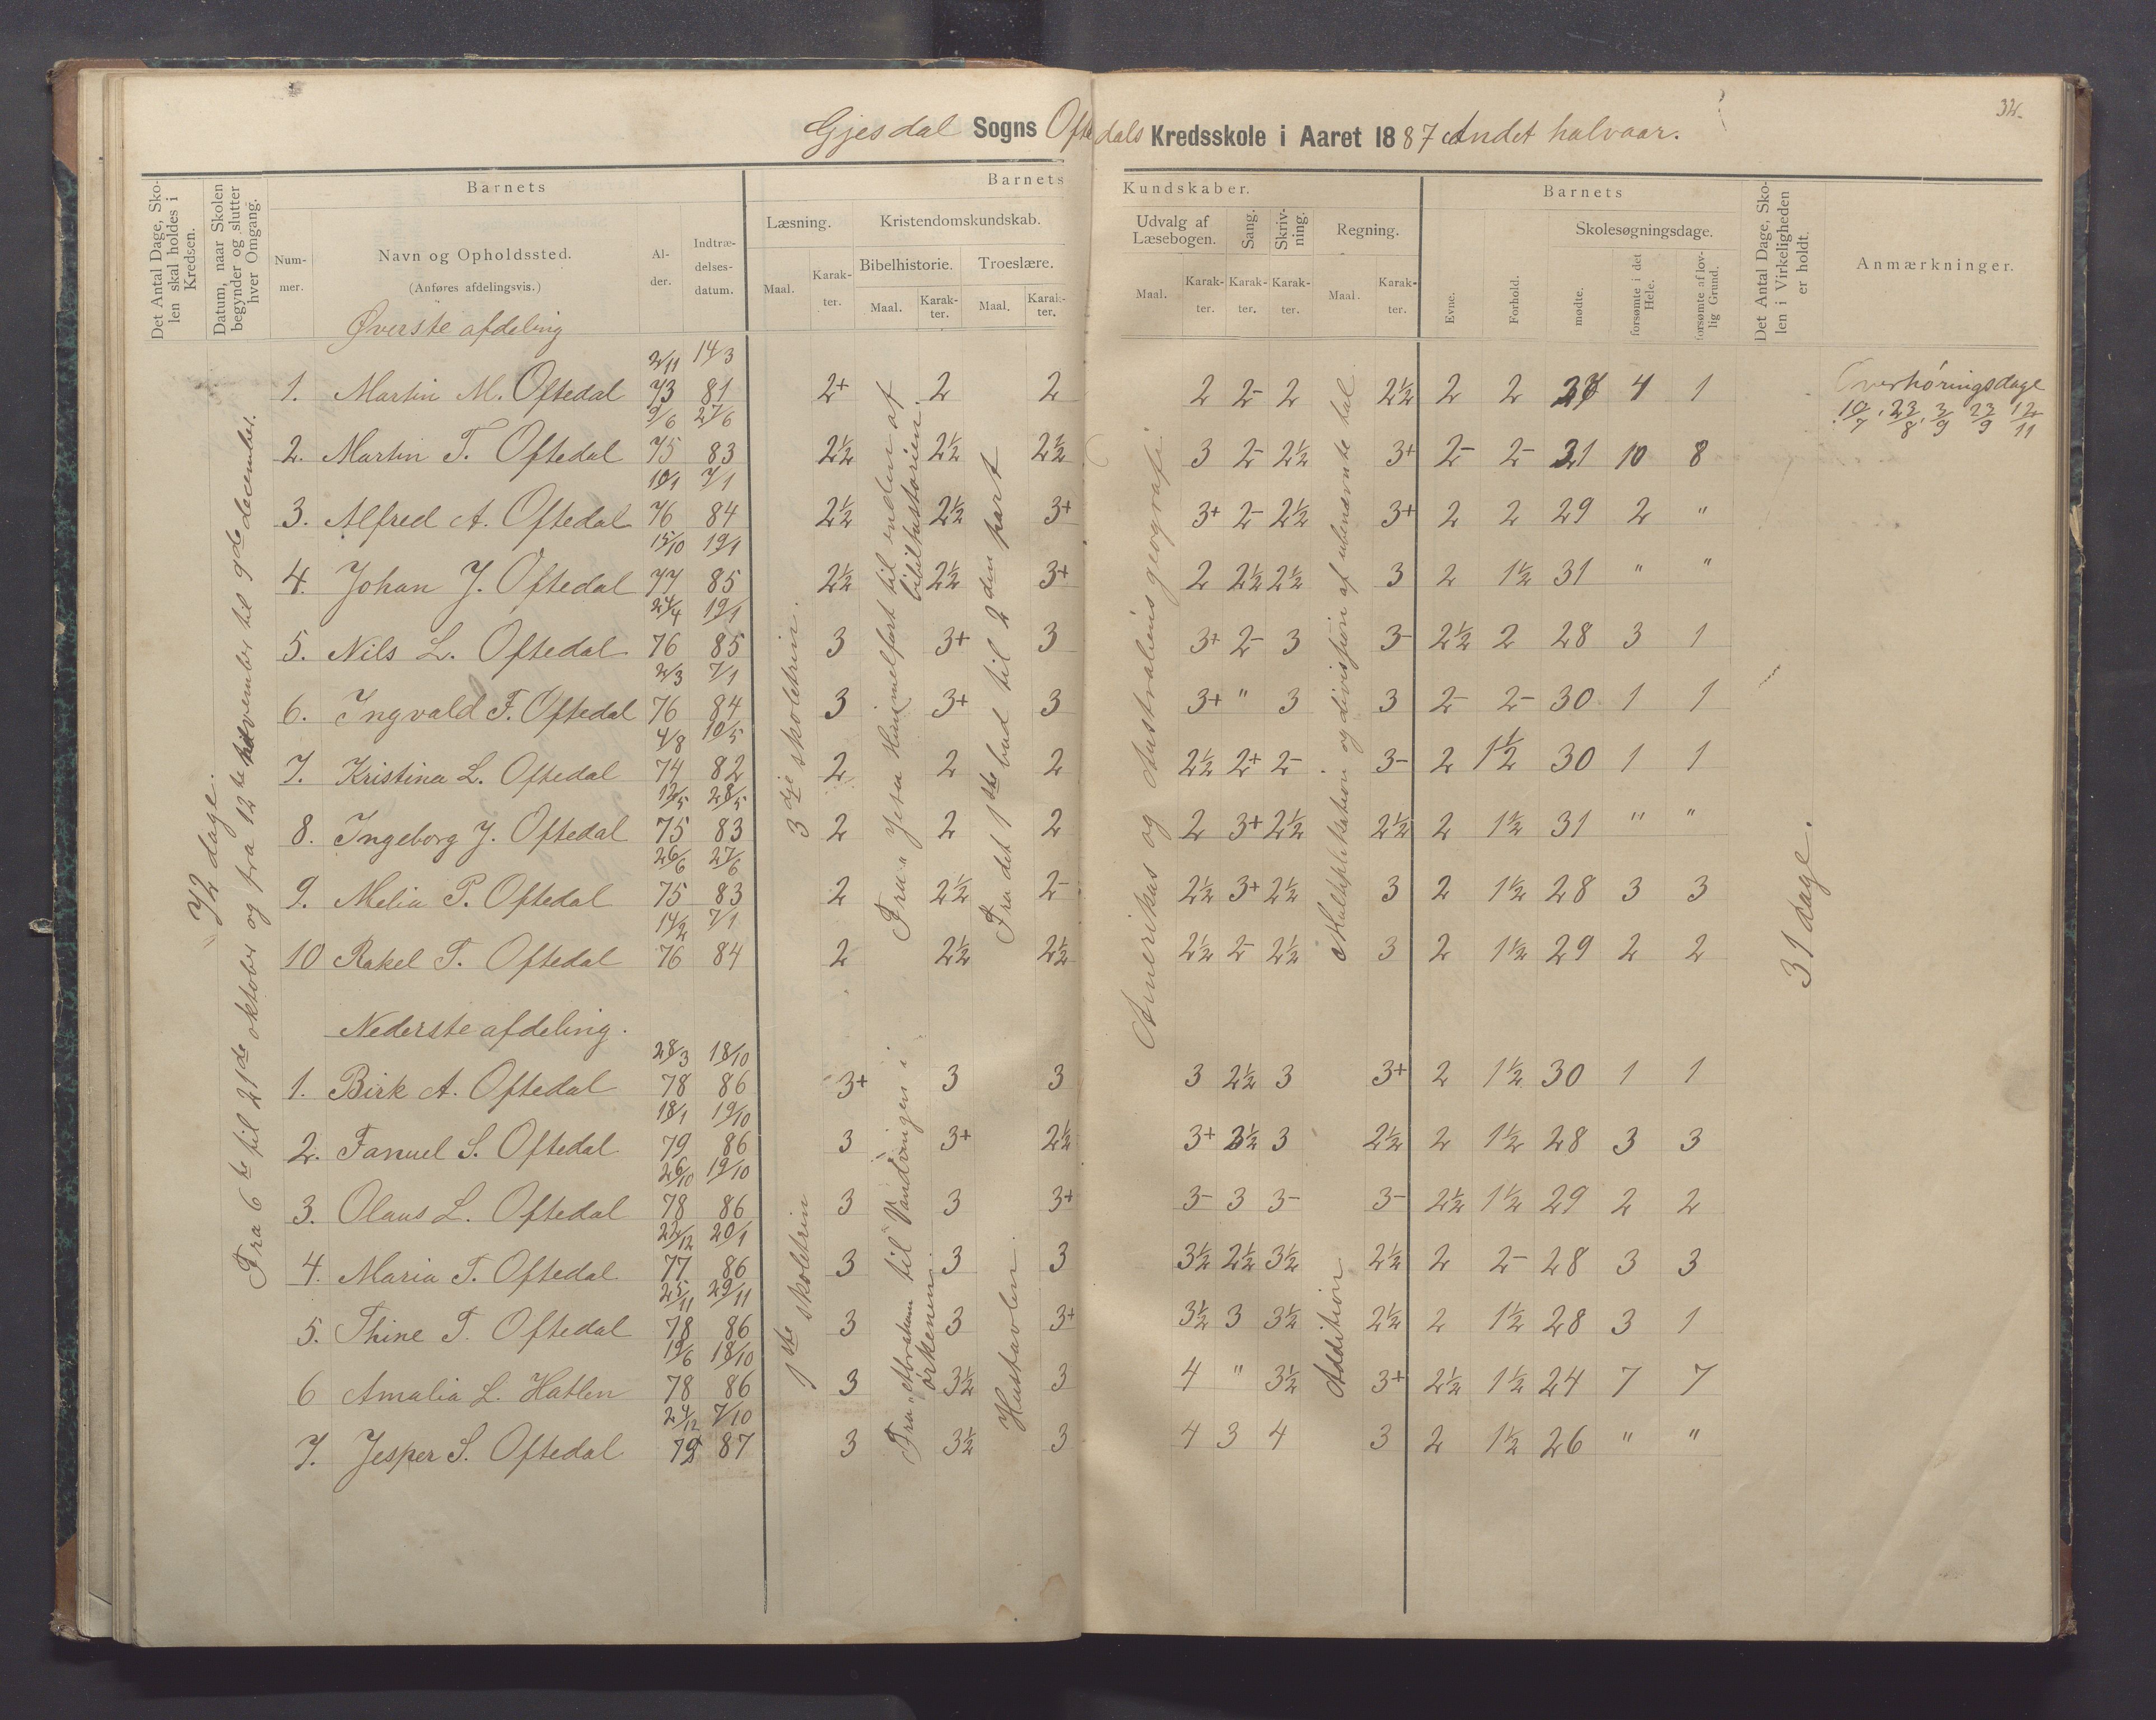 34.
Gjesdal Sogns Oftedals Kredsskole i Aaret 1887 Andet halvaar.
Det Antal Dage, Skolen skal holdes i Kredsen.
Datum, naar Skolen begynder og slutter hver Omgang.
Barnets
Nummer.
Navn og Opholdssted.
(Anføres afdelingsvis.)
Alder.
Indtrædelsesdatum.
Barnets Kundskaber.
Læsning.
Maal. Karakter.
Kristendomskundskab.
Bibelhistorie. Troeslære.
Maal. Karakter. Maal. Karakter.
Udvalg af Læsebogen. Sang. Skrivning. Regning.
Maal. Karakter. Karakter. Karakter. Maal. Karakter.
Barnets
Evne. Forhold. Skolesøgningsdage.
mødte. forsømte i det Hele. forsømte af lovlig Grund.
Det Antal Dage, Skolen i Virkeligheden er holdt.
Anmærkninger.
Øverste afdeling
2/11 14/3
1. Martin M. Oftedal 73 81 2+ 2 2 2 2- 2 2½ 2 2 27 4 1
9/6 27/6
2. Martin T. Oftedal 75 83 2½ 2½ 2½ 3 2- 2½ 3+ 2- 2- 21 10 8
10/1 7/1
3. Alfred A. Oftedal 76 84 2½ 2½ 3+ 3+ 2- 2½ 3+ 2 2 29 2 "
15/10 19/1
4. Johan J. Oftedal 77 85 2½ 2½ 3+ 2 2½ 2½ 3 2 1½ 31 " "
24/4 19/1
5. Nils L. Oftedal 76 85 3 3+ 3 3+ 2- 3 3- 2½ 2 28 3 1
2/3 7/1
6. Ingvald F. Oftedal 76 84 3 3+ 3 3+ " 3 3 2- 2- 30 1 1
4/8 10/5
7. Kristina L. Oftedal 74 82 2 2 2 2½ 2+ 2- 3- 2 1½ 30 1 1
12/5 28/5
8. Ingeborg J. Oftedal 75 83 2 2 2 2 3+ 2½ 2½ 2 1½ 31 " "
26/6 27/6
9. Melia P. Oftedal 75 83 2 2½ 2- 2½ 3+ 2½ 3 2 1½ 28 3 3
14/2 7/1
10 Rakel T. Oftedal 76 84 2 2½ 2½ 2½ 2- 2½ 3 2 1½ 29 2 2
Nederste afdeling.
28/3 18/10
1. Birk A. Oftedal 78 86 3+ 3 3 3 2½ 3 3+ 2 1½ 30 1 1
18/1 19/10
2. Fanuel S. Oftedal 79 86 3 3+ 2½ 3+ 2½ 3 2½ 2 1½ 28 3 3
26/10 19/10
3. Olaus L. Oftedal 78 86 3 3 3+ 3- 3 3- 3- 2½ 1½ 29 2 2
22/12 20/1
4. Maria T. Oftedal 77 86 3 3 3 3½ 2½ 3½ 2½ 2 2- 28 3 3
25/11 29/11
5. Thine T. Oftedal 78 86 3 3 3+ 3½ 3 3½ 2½ 2 1½ 28 3 1
19/6 18/10
6 Amalia L. Hatlen 78 86 3 3½ 3 4 " 3½ 3+ 2½ 1½ 24 7 7
24/12 7/10
7. Jesper S. Oftedal 79 87 3 3½ 3 4 3 4 3 2 1½ 26 " "
72 dage.
Fra 6te til 21de oktober og fra 12te november til 9de december.
3dje skoletrin.
Fra "Jesu Himmelfart til enden af bibelhistorien.
Fra det 1ste bud til 2den part
Amerikas og Australiens geografi
Multiplikation og divisjion af ubenævnte tal
1ste skoletrin
Fra "Abraham til "Vandringen i ørkenen.
Hustavlen.
Addition
31 dage.
Overhøringsdage
10/7, 23/8, 3/9 23/9 12/11